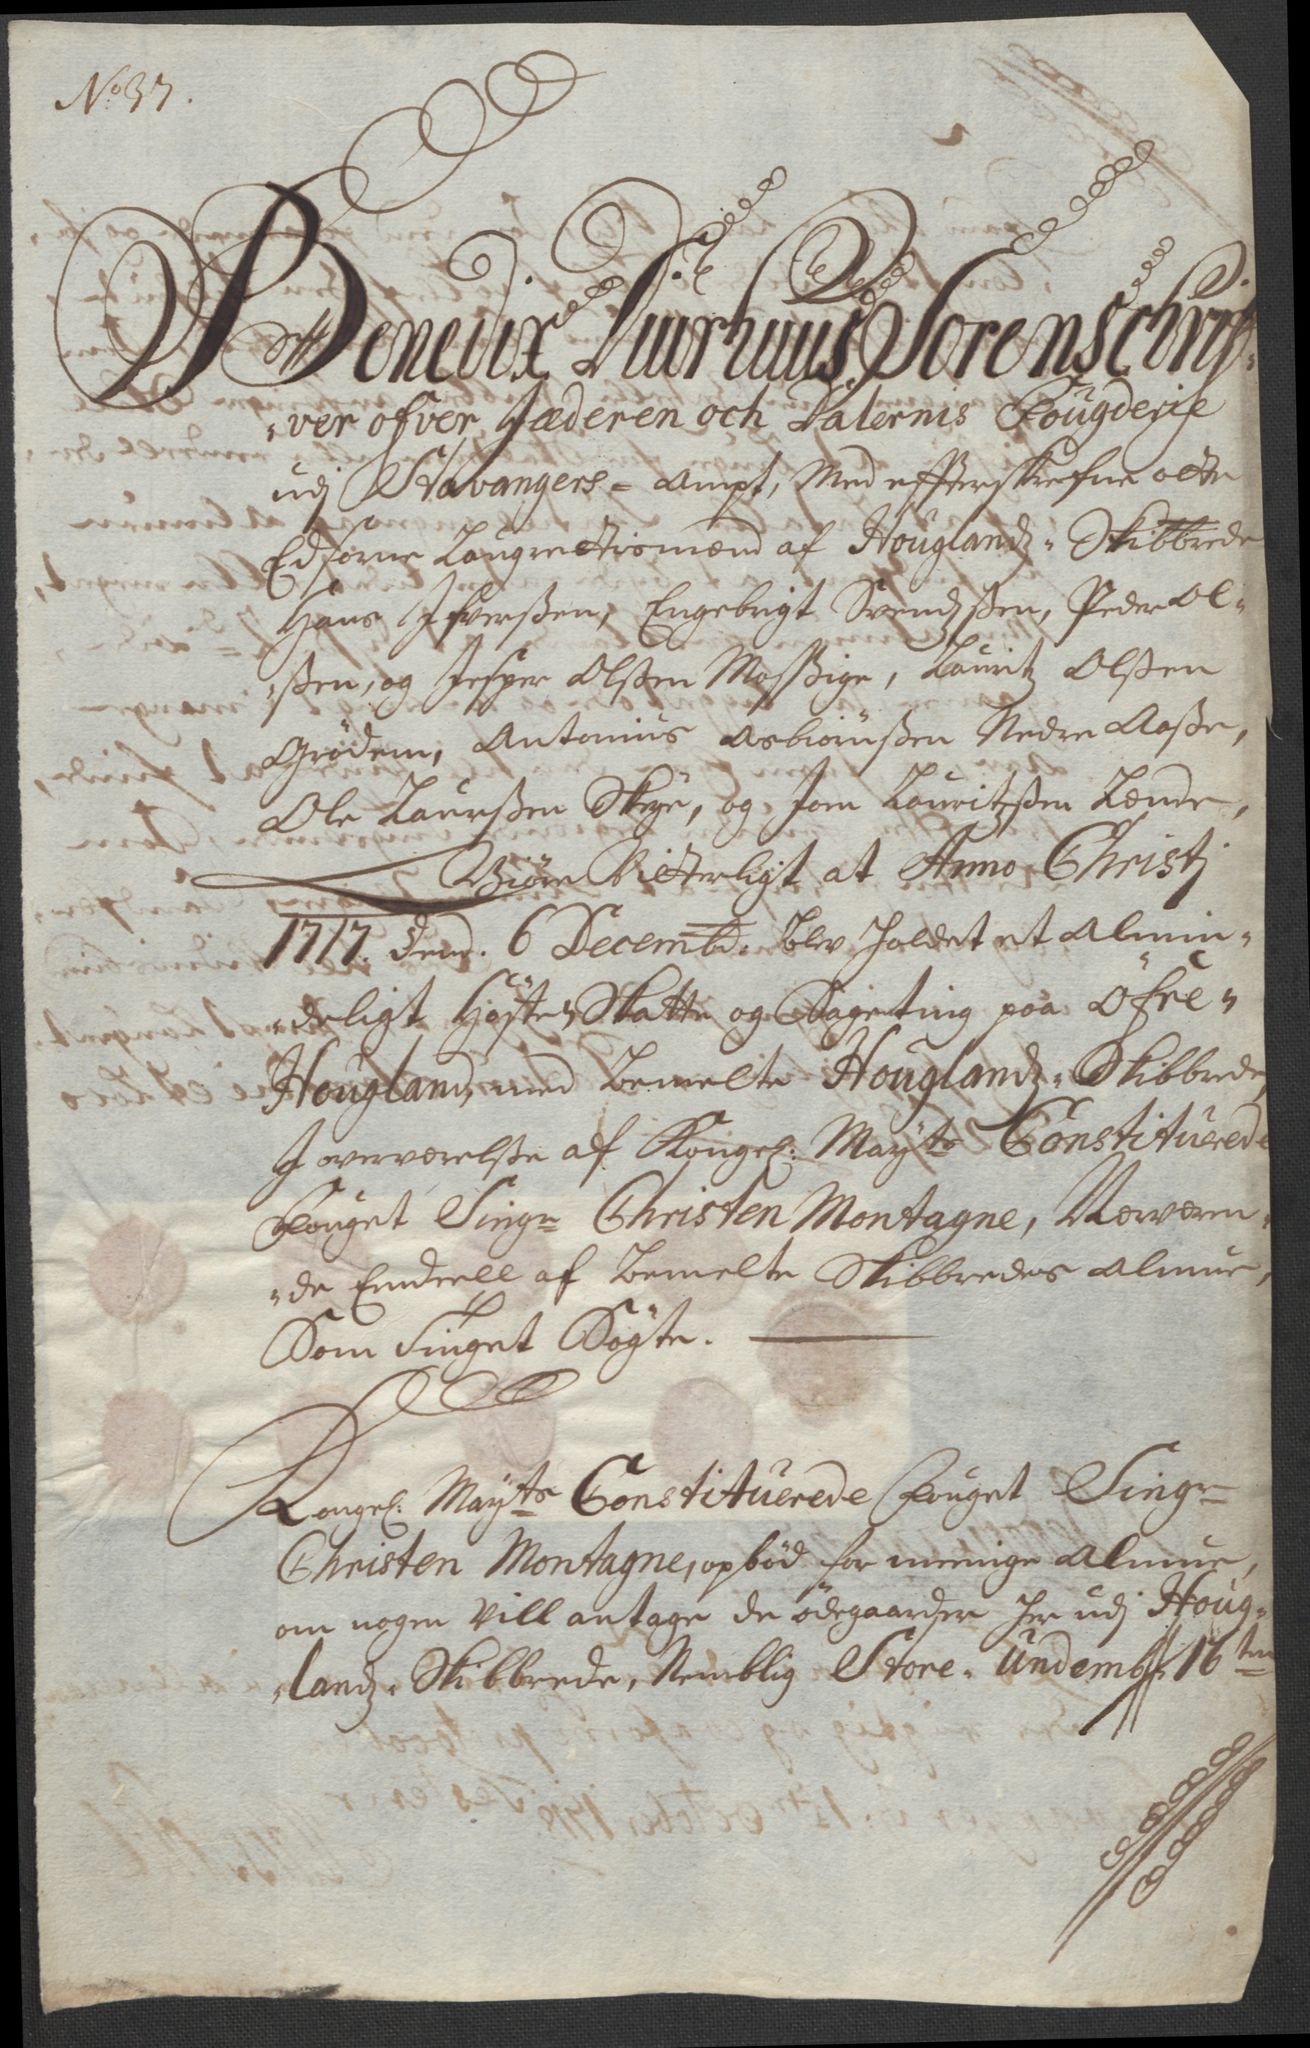 No 37.
Bendix Duurhuus Sorenschrif-
ver ofver Jæderen och Dalernis Fougderie
udj Stavangers-Ampt, Med effterskrefne otte
Edsorne Laugrettismænd af Houglandz-Skibbrede
Hans Ifverßen, Engebrigt Svendsßen, Peder Ol-
ßen, og Jesper Olßen Mosßige, Lauritz Olßen
Grödem, Antonius Asbiörnßen Nedre Aaße,
Ole Laurßen Skeye, og Jon Lauritzßen Lende,
Giöre Vitterligt at Anno Christj
1717. den. 6 Decembr. blev holdet et Almin-
deligt Höste, Skatte og Sageting paa Öfre-
Hougland, med bemelte Houglandz-Skibbrede,
J overværelße af Kongel: Mayts Constituerede
Fouget Singr Christen Montagne, Nærværen-
de Endeell af bemelte Skibbredes Almue,
Som Tinget Sögte.
Kongel: Mayts Constituerede Fouget Singr
Christen Montagne, opböd for menige Almue,
om nogen Vill antage de ödegaarder her udj Houg-
landz-Skibbrede, Nemblig Store-Undemb 16